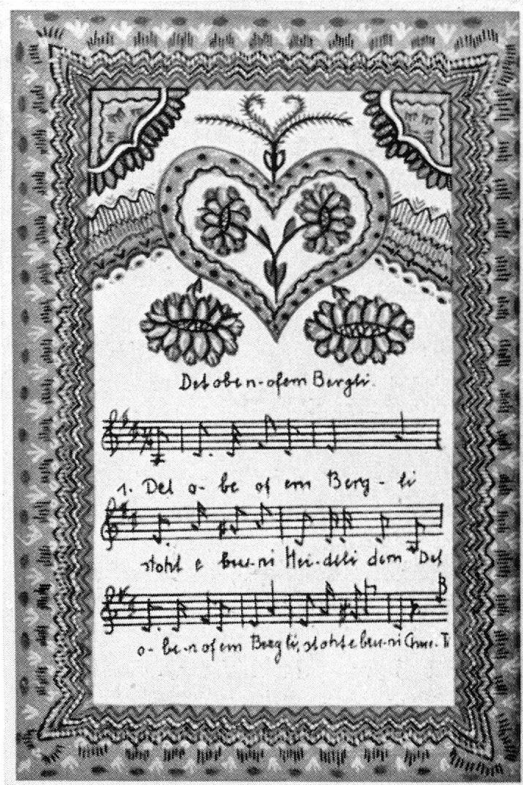 Det obe n-ofem Bergli.
1. Det o- be of em Berg - li
stoht e bru-ni Hei-deli dem Det
o- be-n ofem Bergli, stoht e bru-ni Chue.